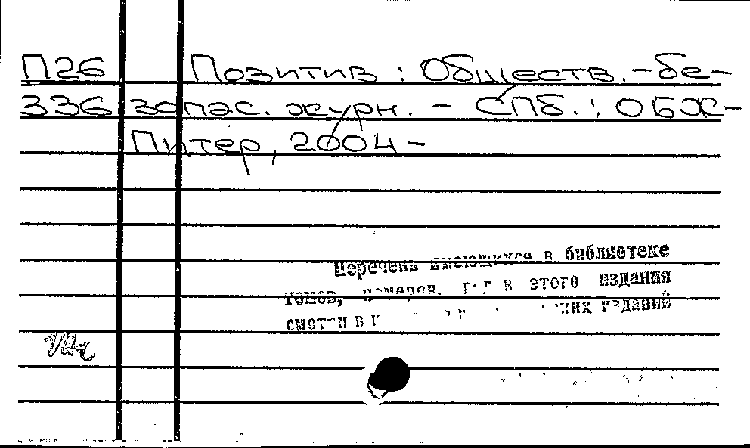 П26 Позитив : Обществ.-бе-
336 зопас. журн. - СПб. : ОБЖ-
Питер, 2004 -
Перечень имеющихся в библиотеке
томов, номеров, г.г в этого издания
смотри в